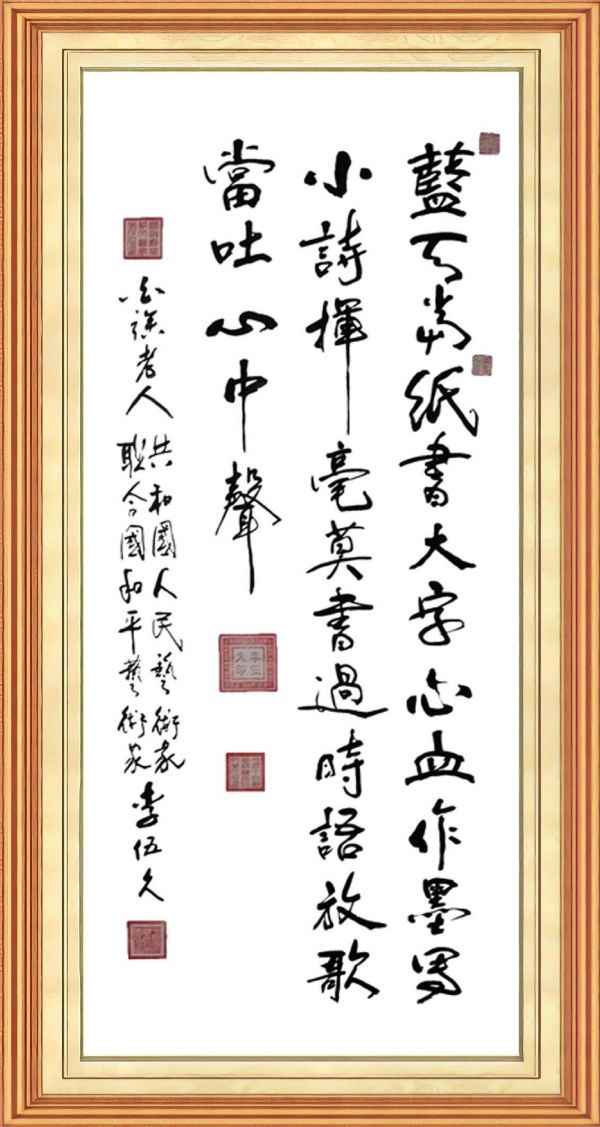 藍天紙書大字心血作墨寫
小詩揮毫莫書過時語放歌
當吐心中聲
老人
共和國人民藝術家
聯合國和平藝術家
李伍久
李伍久印